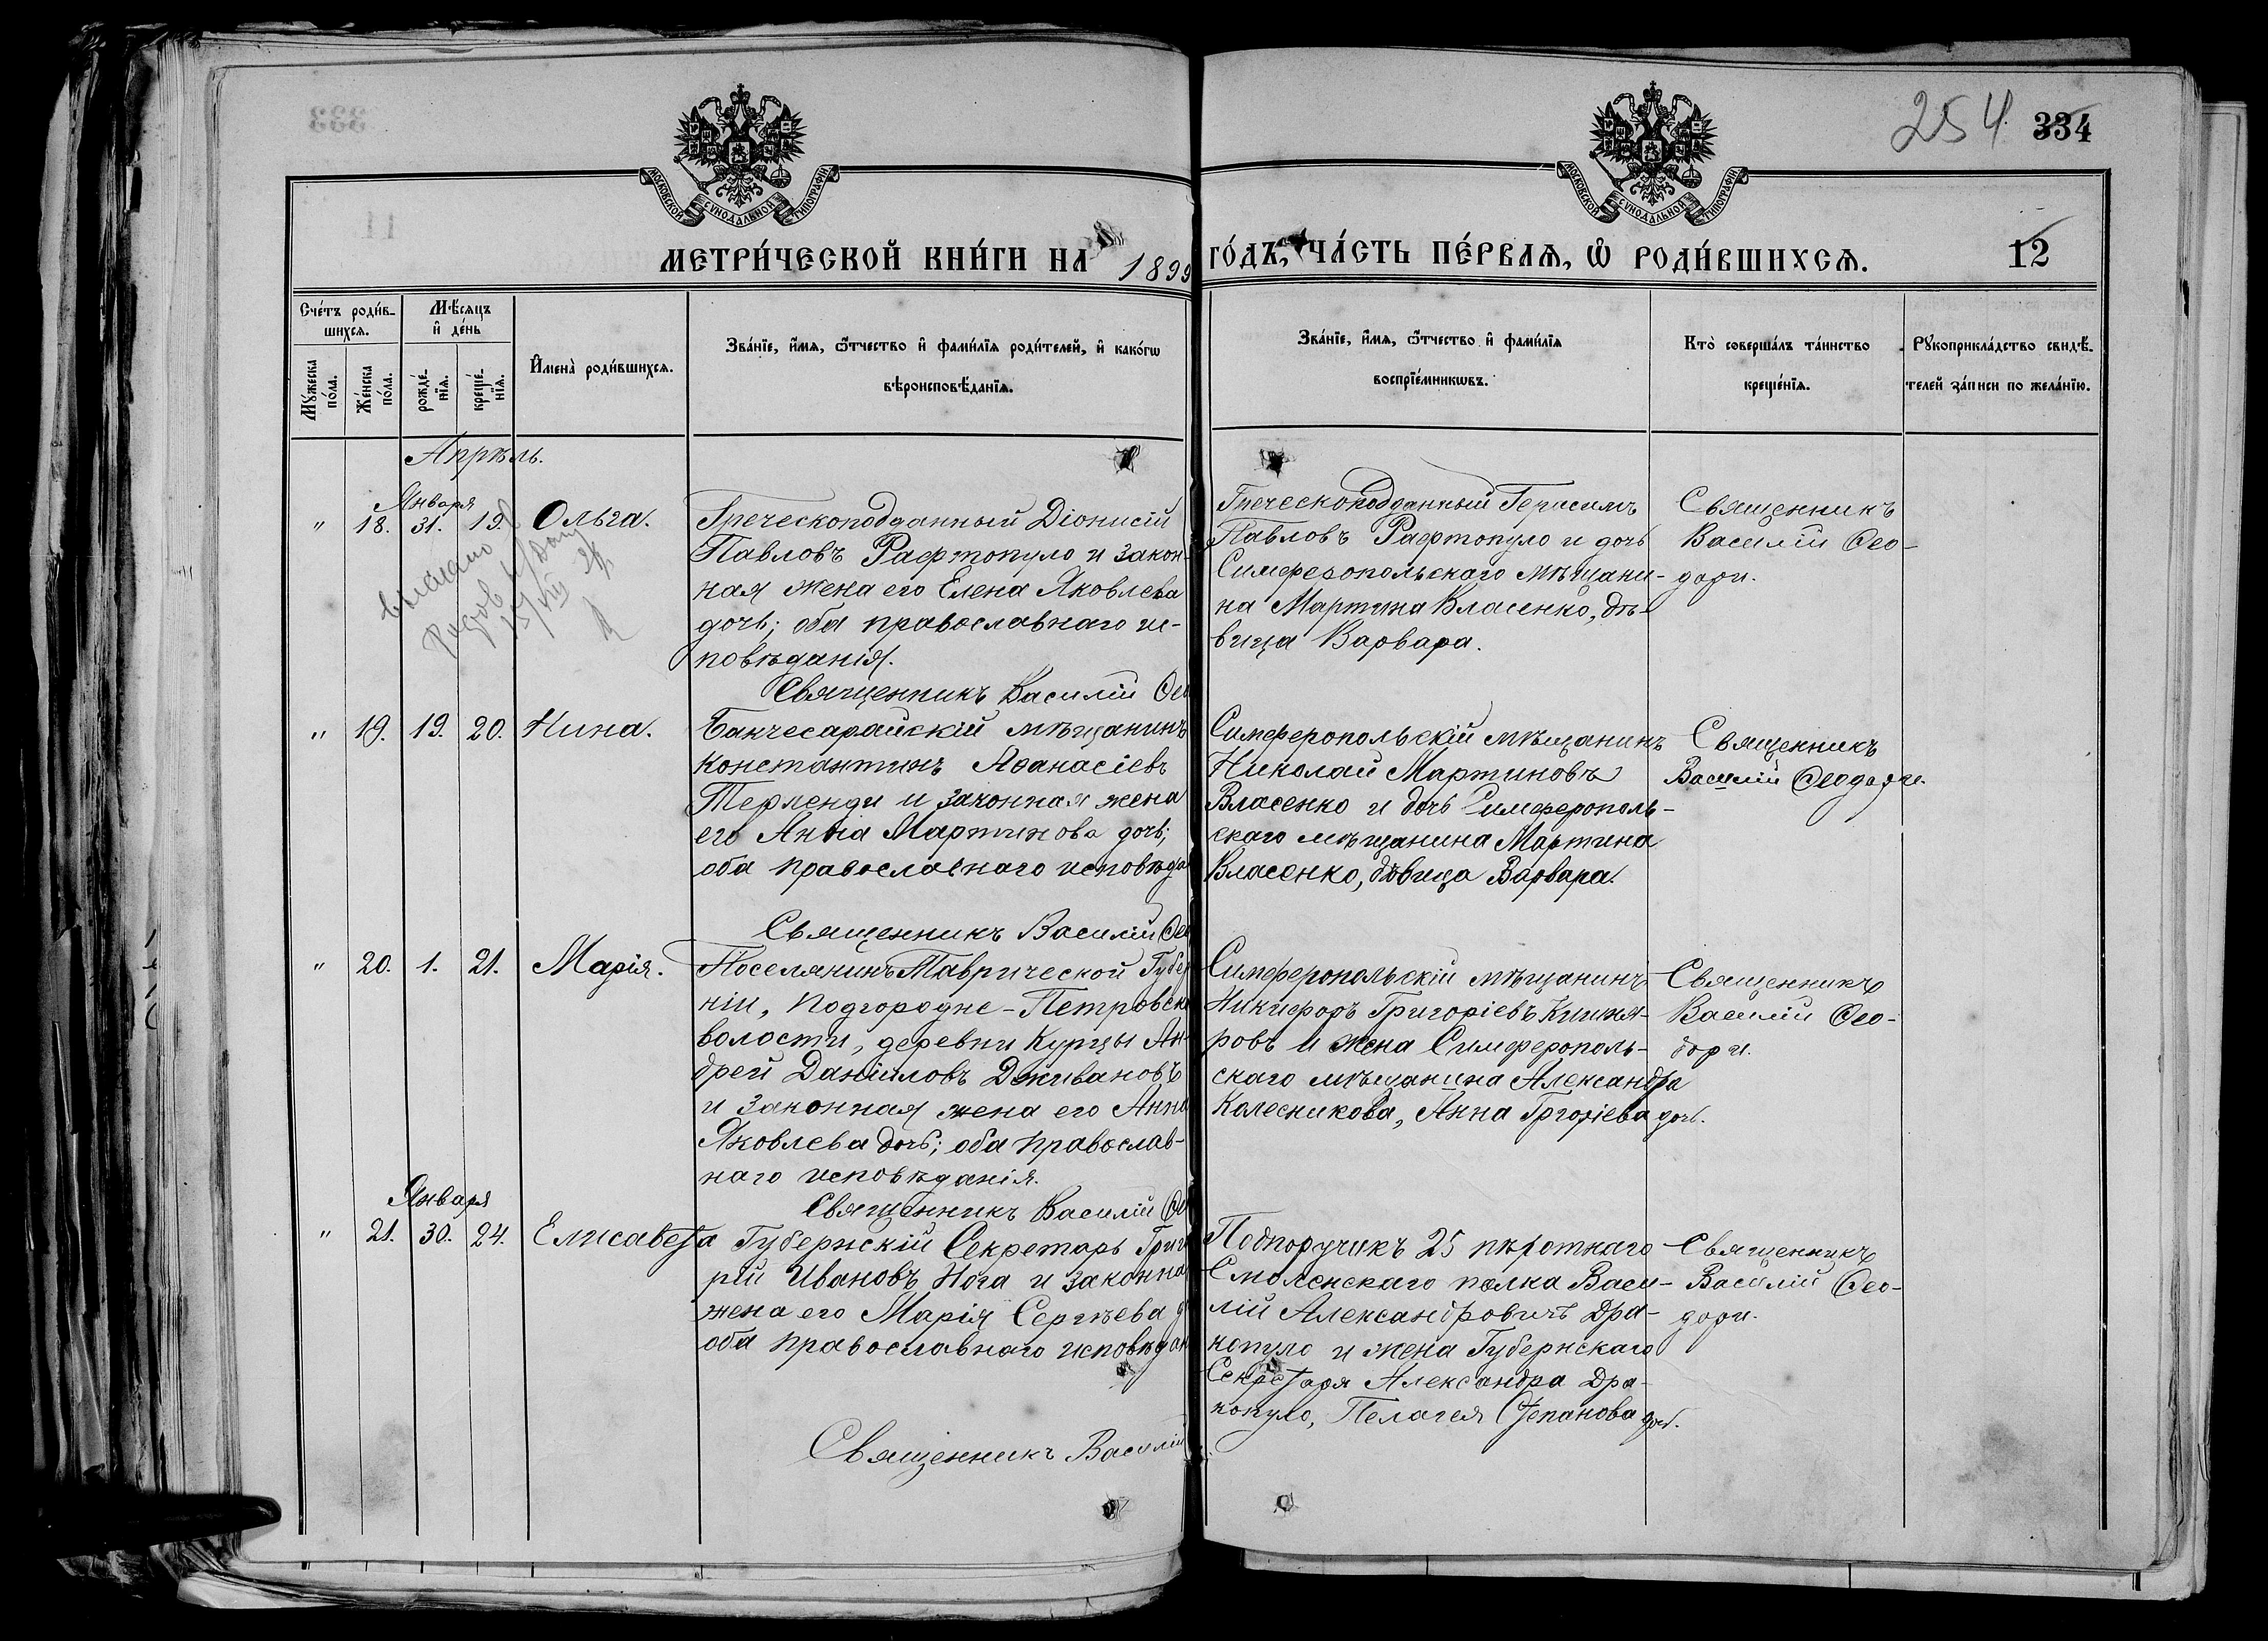 254 334
МОСКОВСКОЙ СУНОДАЛЬНОЙ ТИПОГРАФІИ
МОСКОВСКОЙ СУНОДАЛЬНОЙ ТИПОГРАФІИ
МЕТРИ́ЧЕСКОЙ КНИ́ГИ НА 1899 ГО́ДЪ, ЧА́СТЬ ПЕ́РВАѦ, Ѽ РОДИ́ВШИХСѦ. 12
Сче́тъ роди́в-
шихсѧ.
Мꙋ́жеска по́ла.
Же́нска по́ла.
Мѣ́сѧцъ
и҆ де́нь
рожде́-
нїѧ.
креще́-
нїѧ.
И҆мена̀ роди́вшихсѧ.
Зва́нїе, и҆́мѧ, ѻ҆́тчество и҆ фами́лїѧ роди́телей, и҆ како́гѡ
вѣроисповѣ́данїѧ.
Зва́нїе, и҆́мѧ, ѻ҆́тчество и҆ фами́лїѧ
воспрїе́мникѡвъ.
Кто̀ соверша́лъ та́инство
креще́нїѧ.
Рꙋкоприкла́дство свидѣ́-
телей за́писи по жела́нїю.
Апрѣль.
Января
" 18. 31. 19. Ольга.
Греческоподданный Діонисій
Павловъ Рафтопуло и закон-
ная жена его Елена Яковлева
дочь; оба православнаго ис-
повѣданія.
Священникъ Василій Ѳео
Греческоподданный Герасимъ
Павловъ Рафтопуло и дочь
Симферопольскаго мѣщани-
на Мартина Власенко, дѣ-
вица Варвара.
Священникъ
Василій Ѳео-
дори.
" 19. 19. 20. Нина.
Бахчесарайскій мѣщанинъ
Константинъ Аѳанасіевъ
Терленди и законная жена
его Анна Мартинова дочь;
оба православнаго исповѣда
Священникъ Василій Ѳео
Симферопольскій мѣщанинъ
Николай Мартиновъ
Власенко и дочь Симферополь-
скаго мѣщанина Мартина
Власенко, дѣвица Варвара.
Священникъ
Василій Ѳеодори.
" 20. 1. 21. Марія.
Поселянинъ Таврической Губер
ніи, Подгородне-Петровско
волости, деревни Курцы Ан-
дрей Даніиловъ Дживановъ
и законная жена его Анна
Яковлева дочь; оба православ-
наго исповѣданія.
Священникъ Василій Ѳео
Симферопольскій мѣщанинъ
Никифоръ Григоріевъ
ровъ и жена Симферополь-
скаго мѣщанина Александра
Колесникова, Анна Григоріева дочь.
Священникъ
Василій Ѳео-
дори.
Января
" 21. 30. 24. Елисавета
Губернскій Секретарь Григо
рій Ивановъ Нога и законна
жена его Марія Сергѣева д
оба православнаго исповѣдан
Священникъ Василій
Подпоручикъ 25 пѣхотнаго
Смоленскаго полка Васи-
лій Александровичъ Дра-
копуло и жена Губернскаго
Секретаря Александра Дра-
копуло, Пелагея Степанова дочь.
Священникъ
Василій Ѳео-
дори.